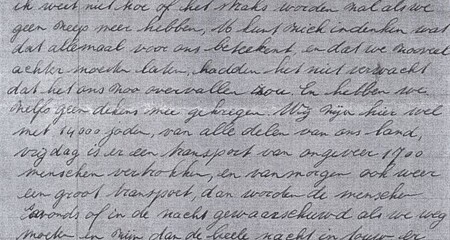 ik weet niet hoe of het straks worden mal als we
geen meep meer hebben, U kunt mich indenken wat
dat allemaal voor ons beteekent, en dat we mooveel
achter moesten laten, hadden het niet verwacht
dat het ons moo overvallen zou. En hebben we
melfs geen dekens mee gekregen. Wij mijn hier wel
met 14000 joden, van alle delen van ons land,
vrijdag is er een transport van ongeveer 1700
menschen vertrokken, en van morgen ook weer
een groot transport, dan worden de menschen
s'avonds of in de nacht gewaarschuwd als we weg
moeten en mijn dan de heele nacht in touw er